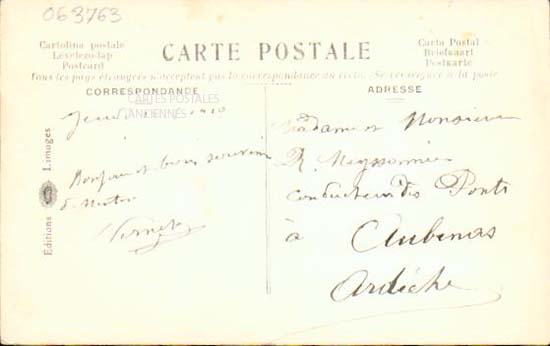 063763
Cartolina postale
Levelezo-lap
Postcard
CARTE POSTALE
Carta Postal
Briefkaart
Postkarte
Tous les pays étrangers n'acceptent pas la correspondance au recto. (Se renseigner à la poste
CORRESPONDANCE
ADRESSE
CARTES POSTALES
ANCIENNES
Jeudi 1910
Bonjour et bons souvenirs
Vernet
Madame et Monsieur
R. Meyssonnier
conducteur des Ponts
à Aubenas
Ardèche
Éditions Limoges